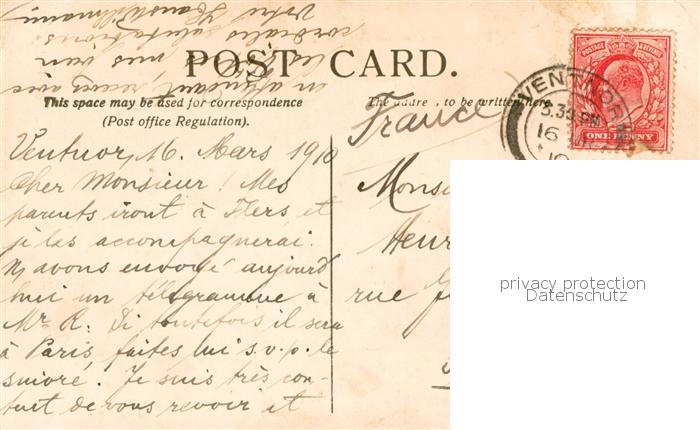 POST CARD.
This space may be used for correspondence
(Post office Regulation).
The addre , to be written here
Ventnor, 16. Mars 1910
Cher Monsieur! Mes
parents iront à Flers, et
je les accompagnerai.
Ns avons envoyé aujourd
hui un télégramme à
Mr R. Si toutefois il sera
à Paris, faites lui s.v.p. le
suivre. Je suis très con-
tent de vous revoir et
en attendant, recevez avec
mes
cordiales salutations.
Votre
France
Monsi
Henr
rue
VENTNOR
3.30 PM
16
10
POSTAGE & REVENUE
ONE PENNY
privacy protection
Datenschutz